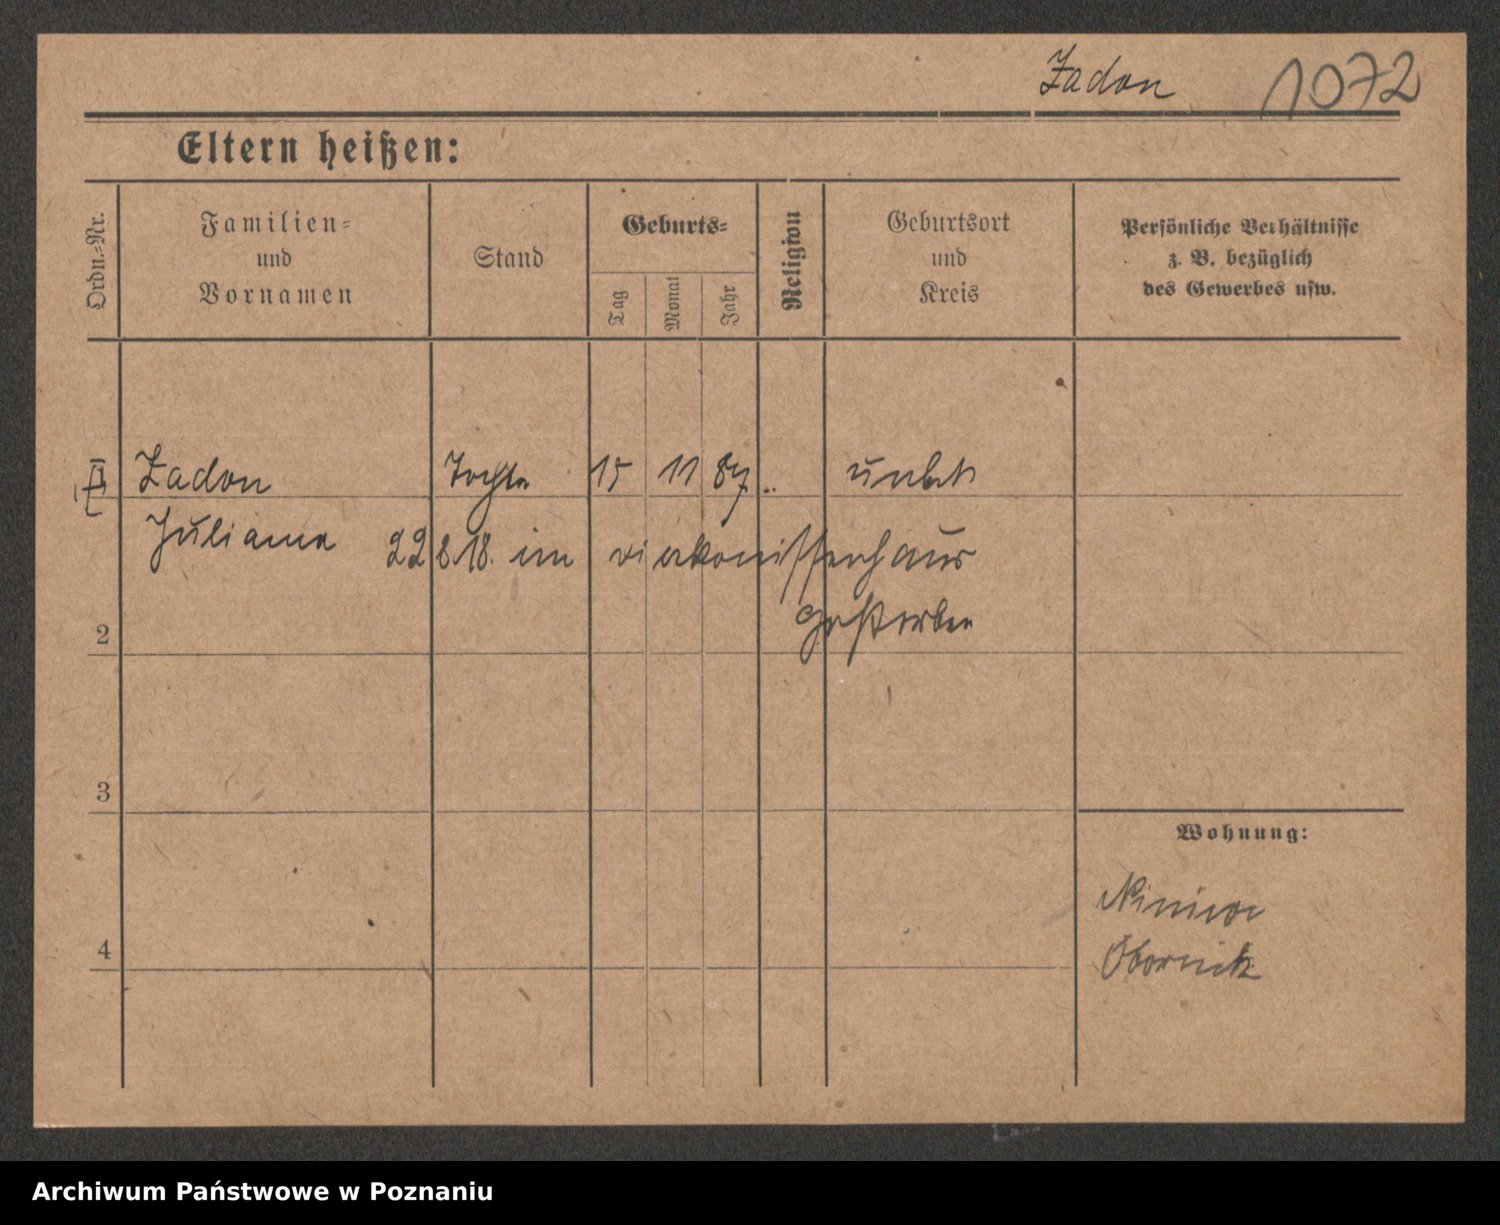 Zadon 1072
Eltern heißen:
Ordn.-Nr.
Familien-
und
Vornamen
Stand
Geburts-
Tag
Monat
Jahr
Religion
Geburtsort
und
Kreis
Persönliche Verhältnisse
z. B. bezüglich
des Gewerbes usw.
Zadon 15 11 87 unbek
Julianna 22 8.18. im Diakonissenhaus
2 gestorben
3
Wohnung:
4
Obornik